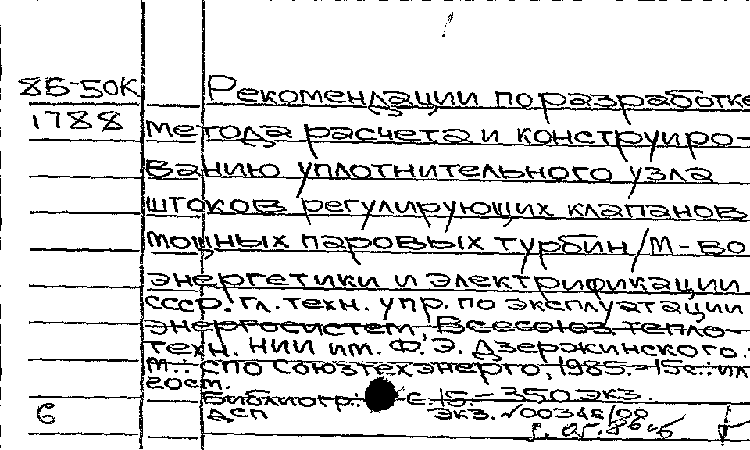 86-50К Рекомендации по разработке
1788 метода расчета и конструиро-
ванию уплотнительного узла
штоков регулирующих клапанов
мощных паровых турбин/М-во
энергетики и электрификации
СССР. Гл. техн. упр. по эксплуатации
энергосистем. Всесоюз. тепло-
техн. НИИ им. Ф.Э. Дзержинского.-
М.: СПО Союзтехэнерго, 1985.-15с.: ил
20см.
Библиогр.: с.15.- 350 экз.
6 ДСП экз. №00346/00